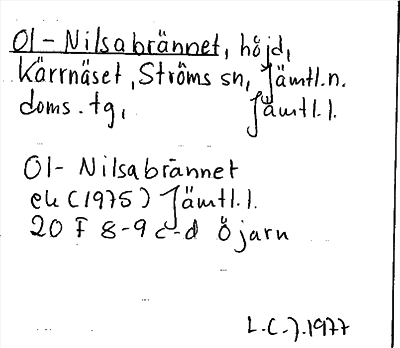 Ol-Nilsabrännet, höjd,
Kärrnäset, Ströms sn, Jämtl.n.
doms.tg, Jämtl.l.
Ol-Nilsabrännet
ek (1975) Jämtl.l.
20 F 8-9 c-d Öjarn
L.C.J. 1977